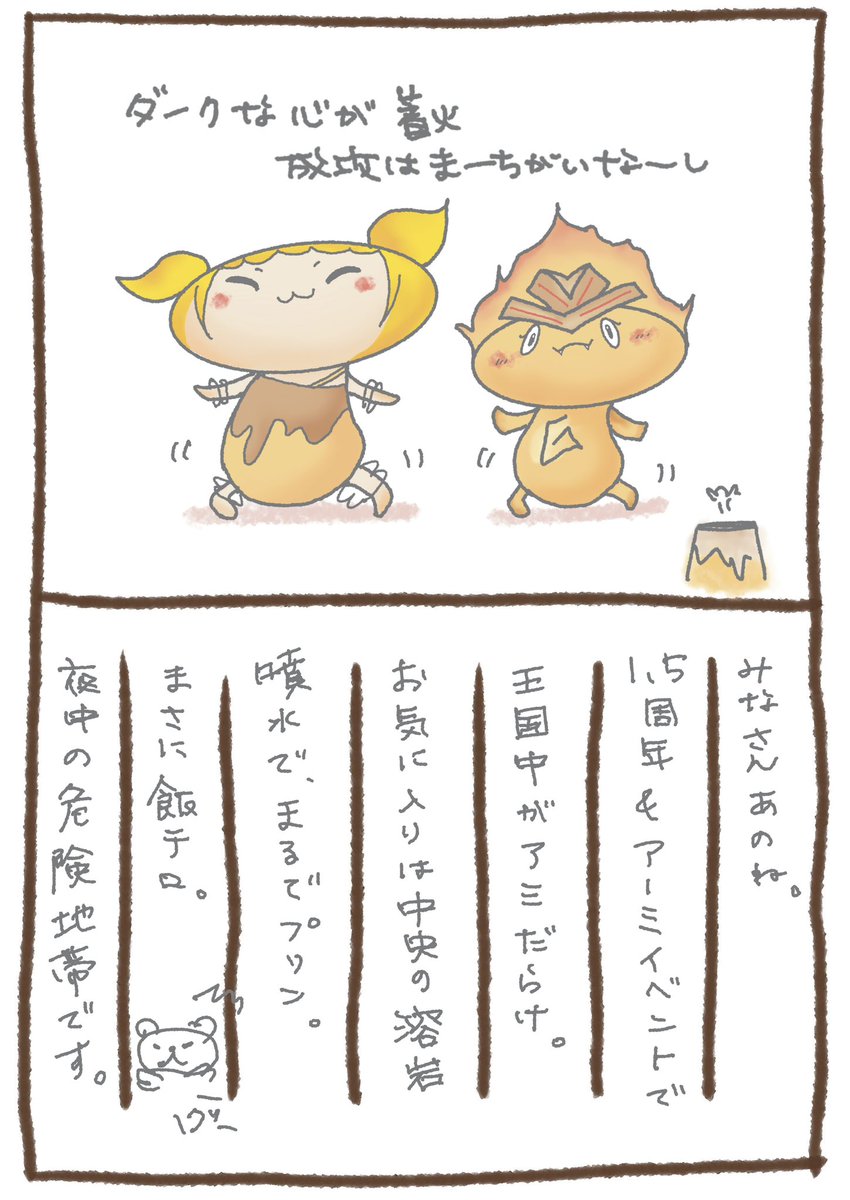 ダークな心が 着火
成攻はまーちがいなーし
みなさんあのね。
1.5周年&アーミイベントで
王国中がアミだらけ。
お気に入りは中央の溶岩
噴水で、まるでプリン。
まさに飯テロ。
夜中の危険地帯です。